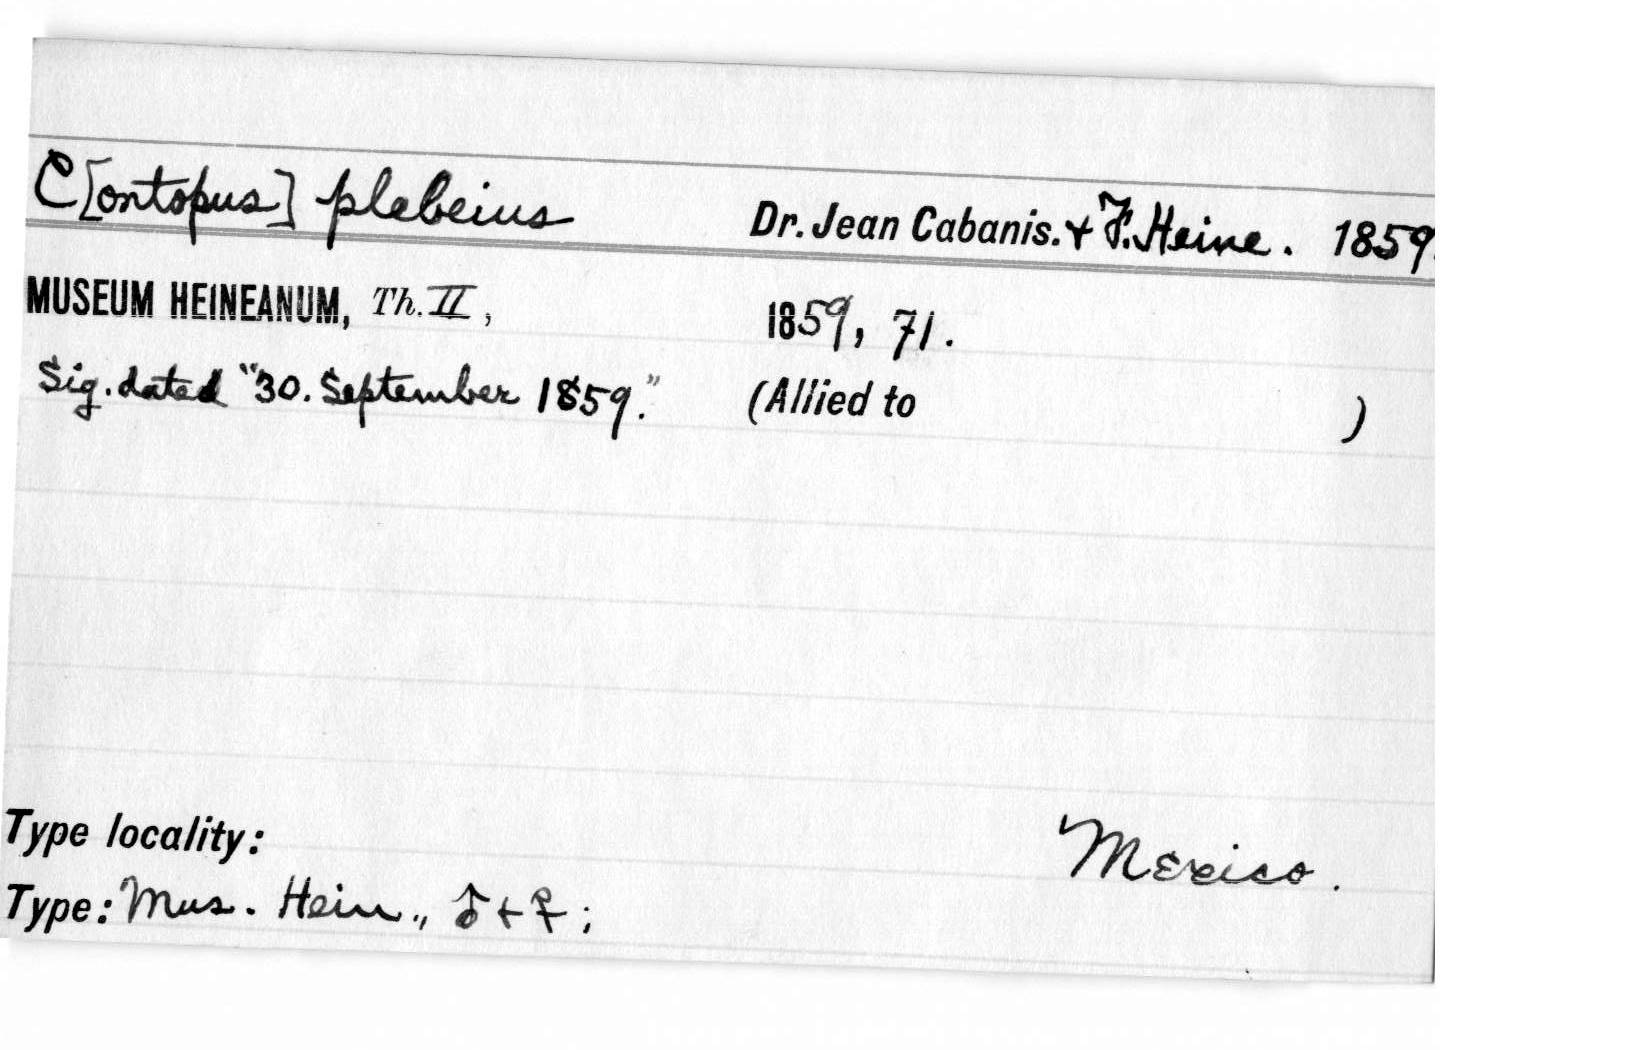 C[ontopus] plebeius Dr. Jean Cabanis. + F. Heine. 1859.
MUSEUM HEINEANUM, Th. II, 1859, 71.
Sig. dated "30. September 1859." (Allied to )
Type locality: Mexico.
Type: Mus. Hein., ♂ + ♀;